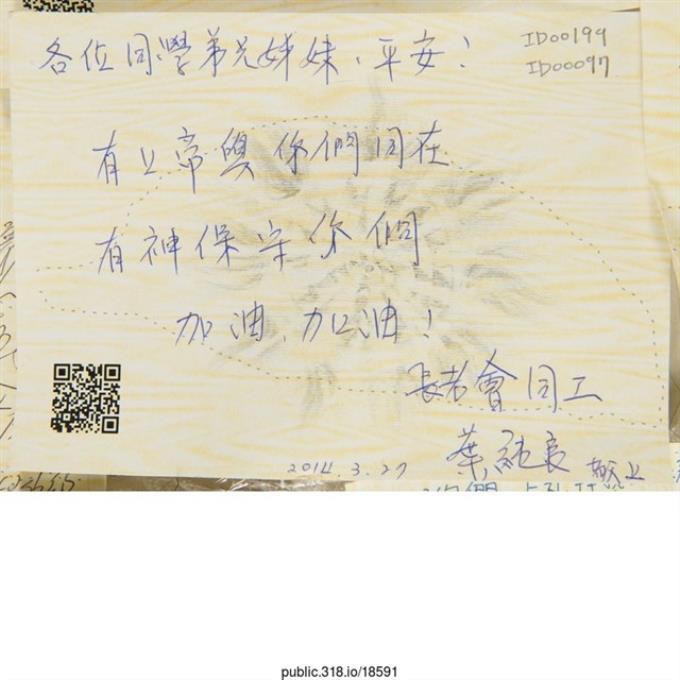 各位同學弟兄姊妹、平安！
ID00199
ID00097
有上帝與你們同在
有神保守你們
加油、加油！
長老會同工
葉純良 敬上
2014.3.27
public.318.io/18591